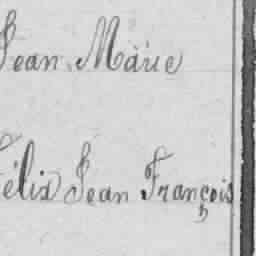 Jean Marie
Félix Jean François